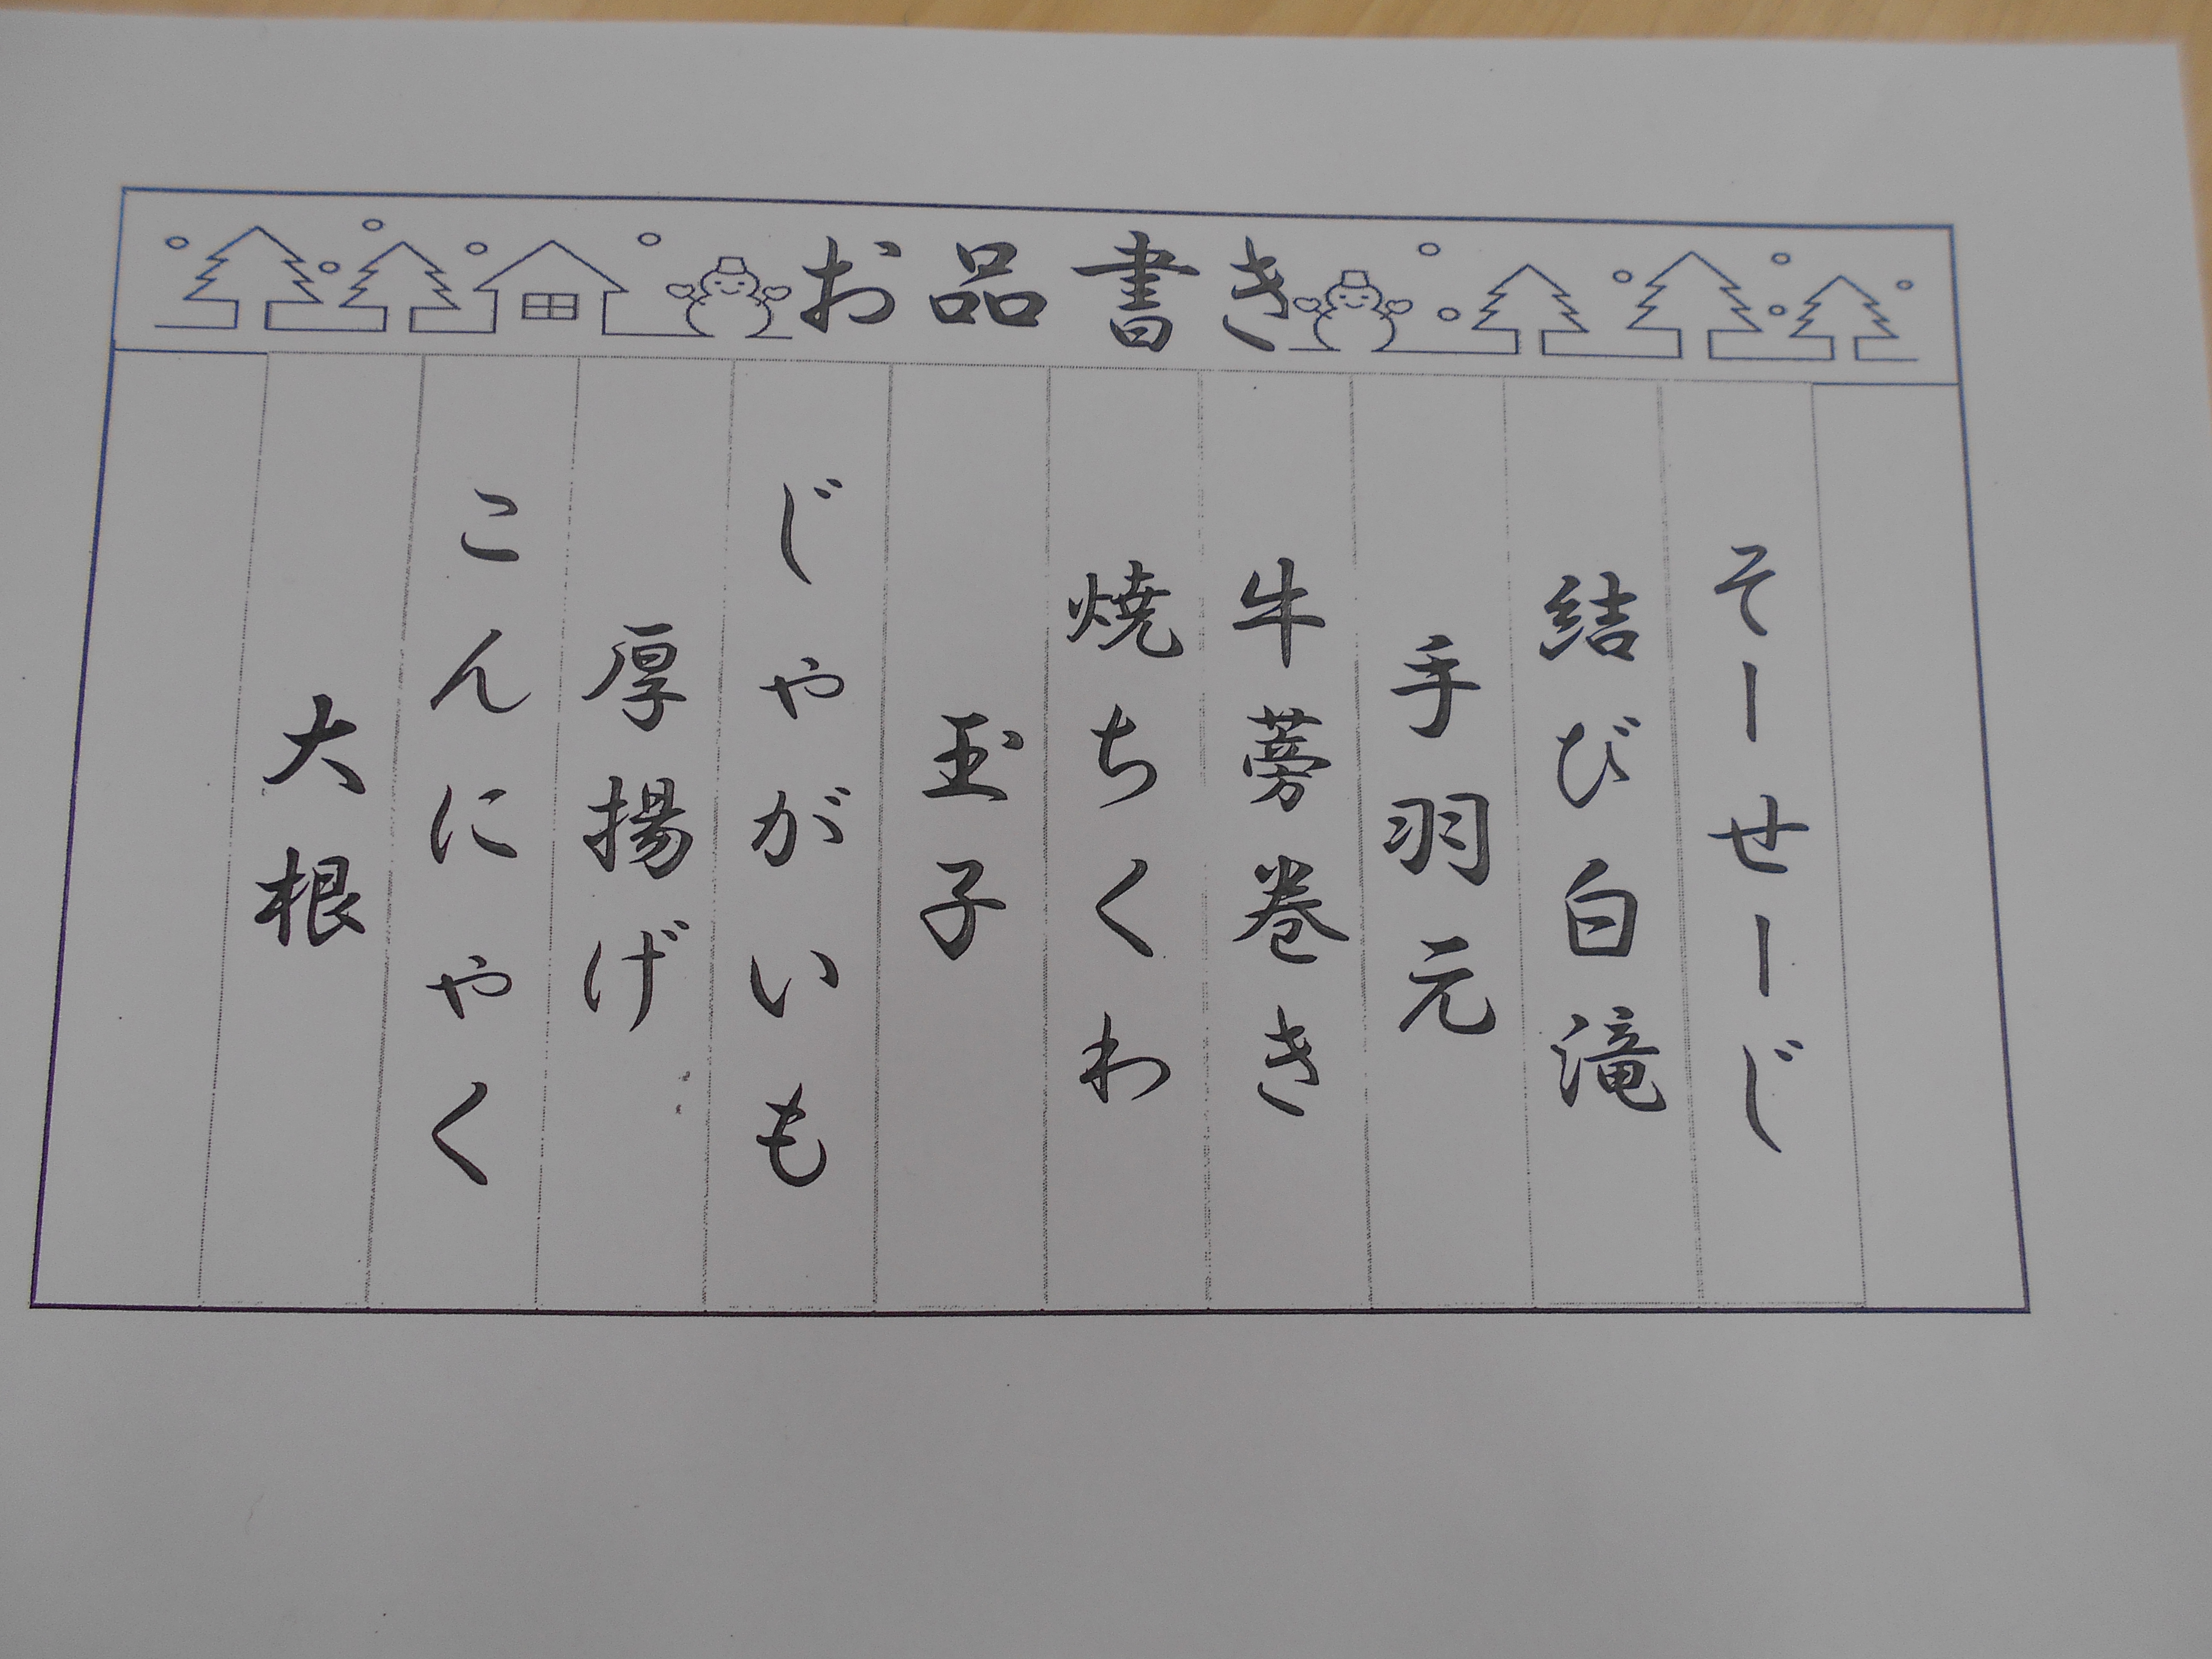 お品書き
そーせーじ
結び白滝
手羽元
牛蒡巻き
焼ちくわ
玉子
じゃがいも
厚揚げ
こんにゃく
大根